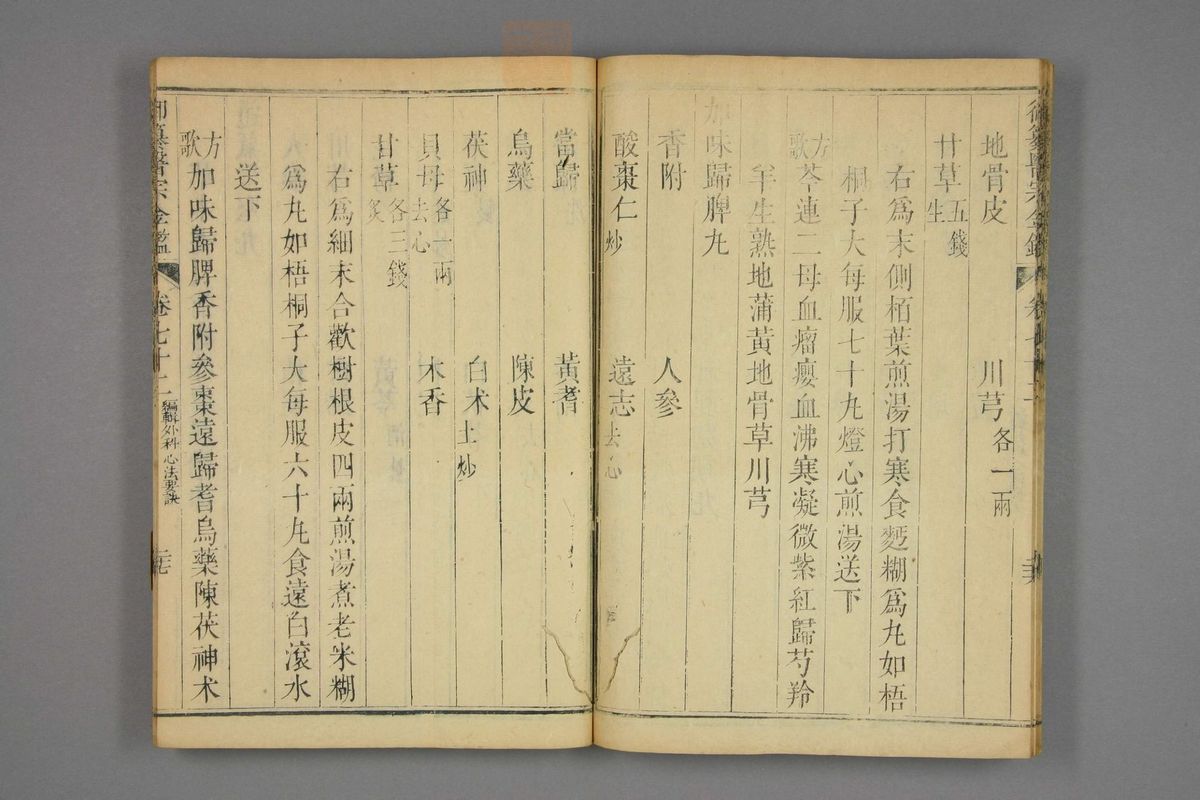 地骨皮 川芎各一兩
甘草生五錢
右爲末側栢葉煎湯打寒食麪糊爲丸如梧
桐子大每服七十丸燈心煎湯送下
方歌芩連二母血瘤癭血沸寒凝微紫紅歸芍羚
羊生熟地蒲黃地骨草川芎
加味歸脾丸
香附 人參
酸棗仁炒 遠志去心
當歸 黃耆
烏藥 陳皮
茯神 白术土炒
貝母去心各一兩 木香
甘草炙各三錢
右爲細末合歡樹根皮四兩煎湯煮老米糊
爲丸如梧桐子大每服六十丸食遠白滾水
送下
方歌加味歸脾香附參棗遠歸耆烏藥陳茯神术
御纂醫宗金鑑 卷七十二 編輯外科心法要訣